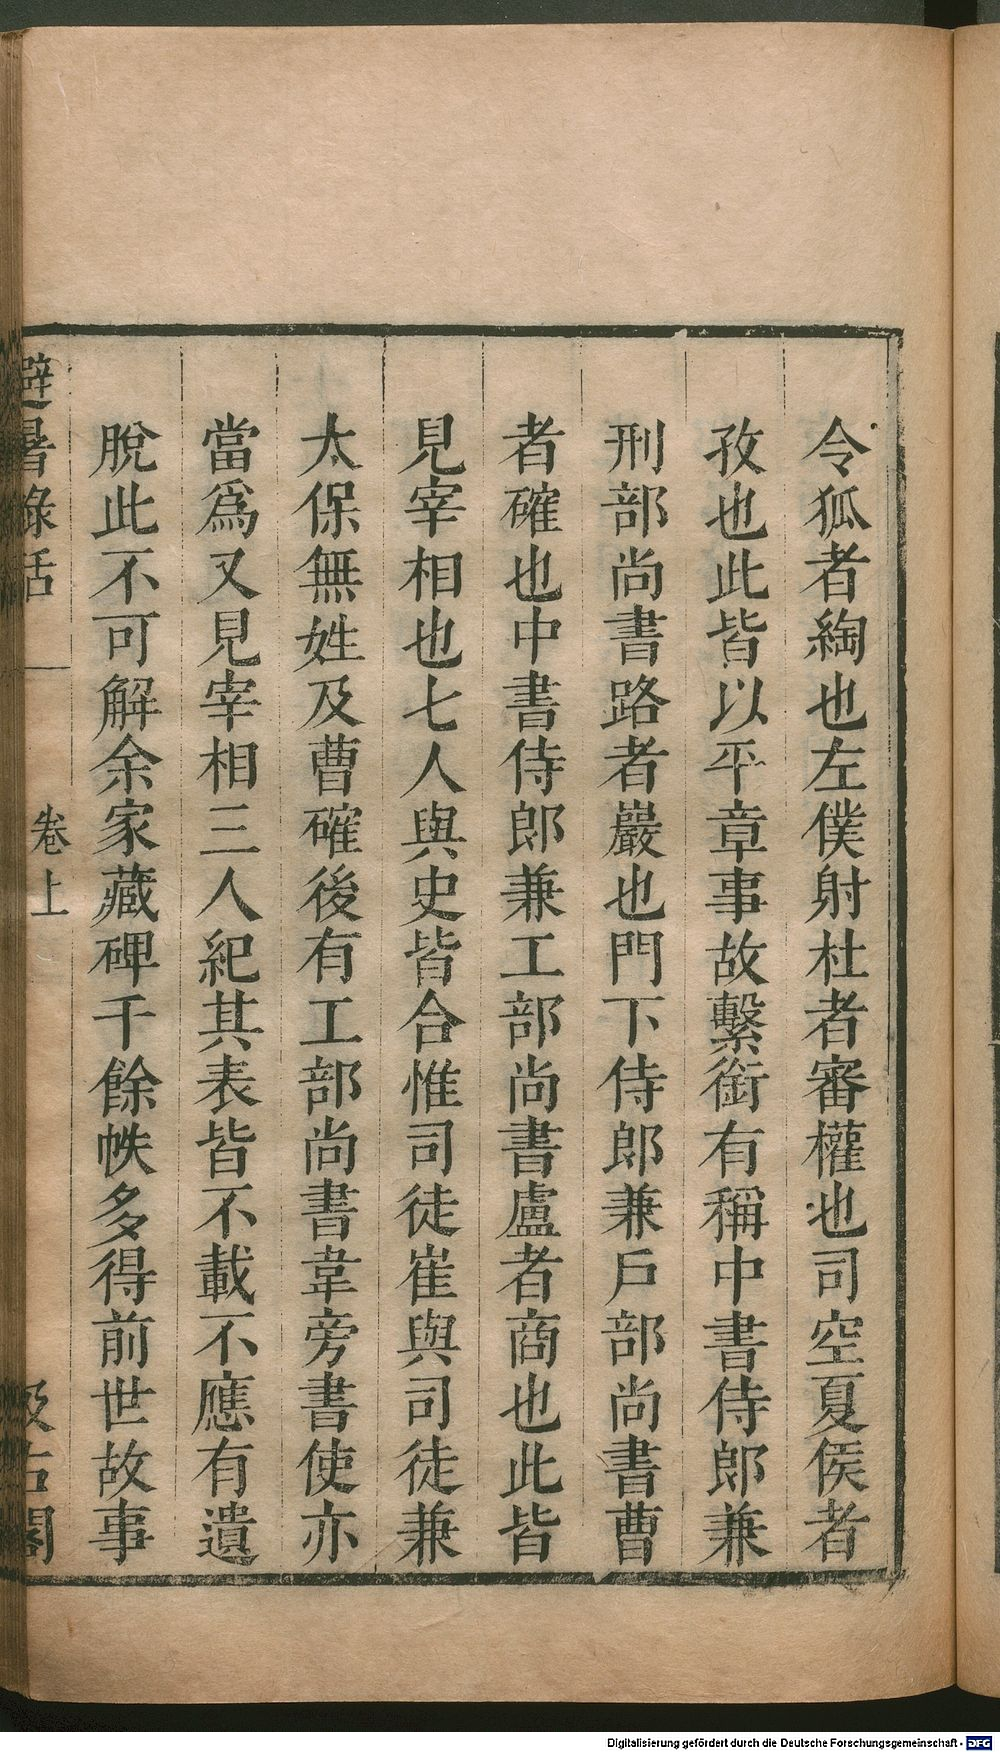 令狐者綯也左僕射杜者審權也司空夏侯者
孜也此皆以平章事故繫銜有稱中書侍郎兼
刑部尚書路者巖也門下侍郎兼戶部尚書曹
者確也中書侍郎兼工部尚書盧者商也此皆
見宰相也七人與史皆合惟司徒崔與司徒兼
太保無姓及曹確後有工部尚書韋旁書使亦
當爲又見宰相三人紀其表皆不載不應有遺
脫此不可解余家藏碑千餘帙多得前世故事
避暑錄話 卷上 汲古閣
Digitalisierung gefördert durch die Deutsche Forschungsgemeinschaft - DFG